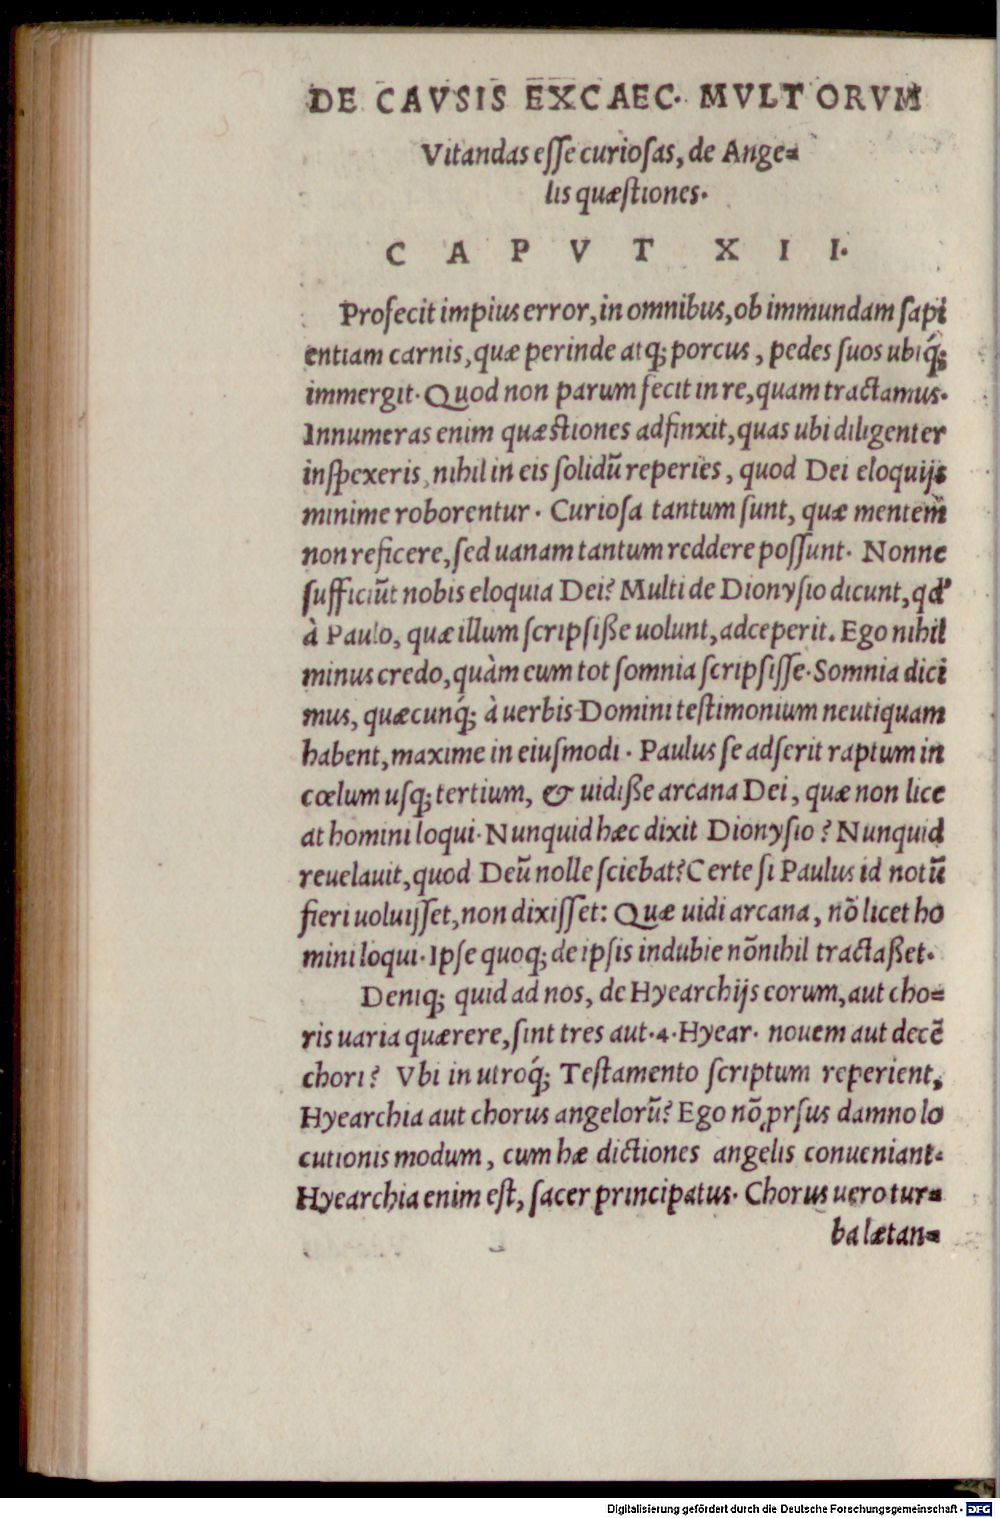 DE CAVSIS EXCAEC. MVLTORVM
Vitandas esse curiosas, de Ange=
lis quæstiones.
CAPVT XII.
Profecit impius error, in omnibus, ob immundam sapi
entiam carnis, quæ perinde atq; porcus, pedes suos ubiq́;
immergit. Quod non parum fecit in re, quam tractamus.
Innumeras enim quæstiones adfinxit, quas ubi diligenter
inspexeris, nihil in eis solidũ reperies, quod Dei eloquijs
minime roborentur. Curiosa tantum sunt, quæ mentem
non reficere, sed uanam tantum reddere possunt. Nonne
sufficiũt nobis eloquia Dei? Multi de Dionysio dicunt, qd'
à Paulo, quæ illum scripsiße uolunt, adceperit. Ego nihil
minus credo, quàm eum tot somnia scripsisse. Somnia dici
mus, quæcunq́; à uerbis Domini testimonium neutiquam
habent, maxime in eiusmodi. Paulus se adserit raptum in
cœlum usq; tertium, & uidiße arcana Dei, quæ non lice
at homini loqui. Nunquid hæc dixit Dionysio? Nunquid
reuelauit, quod Deũ nolle sciebat? Certe si Paulus id notũ
fieri uoluijsset, non dixisset: Quæ uidi arcana, nõ licet ho
mini loqui. Ipse quoq; de ipsis indubie nõnihil tractaßet.
Deniq; quid ad nos, de Hyearchijs eorum, aut cho=
ris uaria quærere, sint tres aut .4. Hyear. nouem aut decẽ
chori? Vbi in utroq́; Testamento scriptum reperient,
Hyearchia aut chorus angelorũ? Ego nõ ꝓrsus damno lo
cutionis modum, cum hæ dictiones angelis conueniant.
Hyearchia enim est, sacer principatus. Chorus uero tur=
ba lætan=
Digitalisierung gefördert durch die Deutsche Forschungsgemeinschaft - DFG